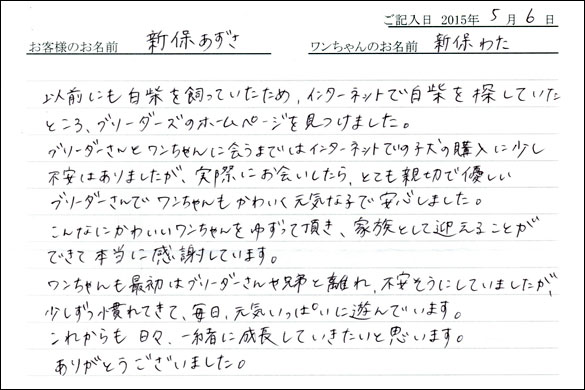 ご記入日 2015年 5月 6日
お客様のお名前 新保あずさ ワンちゃんのお名前 新保わた
以前にも白柴を飼っていたため、インターネットで白柴を探していた
ところ、ブリーダーズのホームページを見つけました。
ブリーダーさんとワンちゃんに会うまではインターネットでの子犬の購入に少し
不安はありましたが、実際にお会いしたら、とても親切で優しい
ブリーダーさんでワンちゃんもかわいく元気な子で安心しました。
こんなにかわいいワンちゃんをゆずって頂き、家族として迎えることが
できて本当に感謝しています。
ワンちゃんも最初はブリーダーさんや兄弟と離れ、不安そうにしていましたが、
少しずつ慣れてきて、毎日、元気いっぱいに遊んでいます。
これからも日々、一緒に成長していきたいと思います。
ありがとうございました。